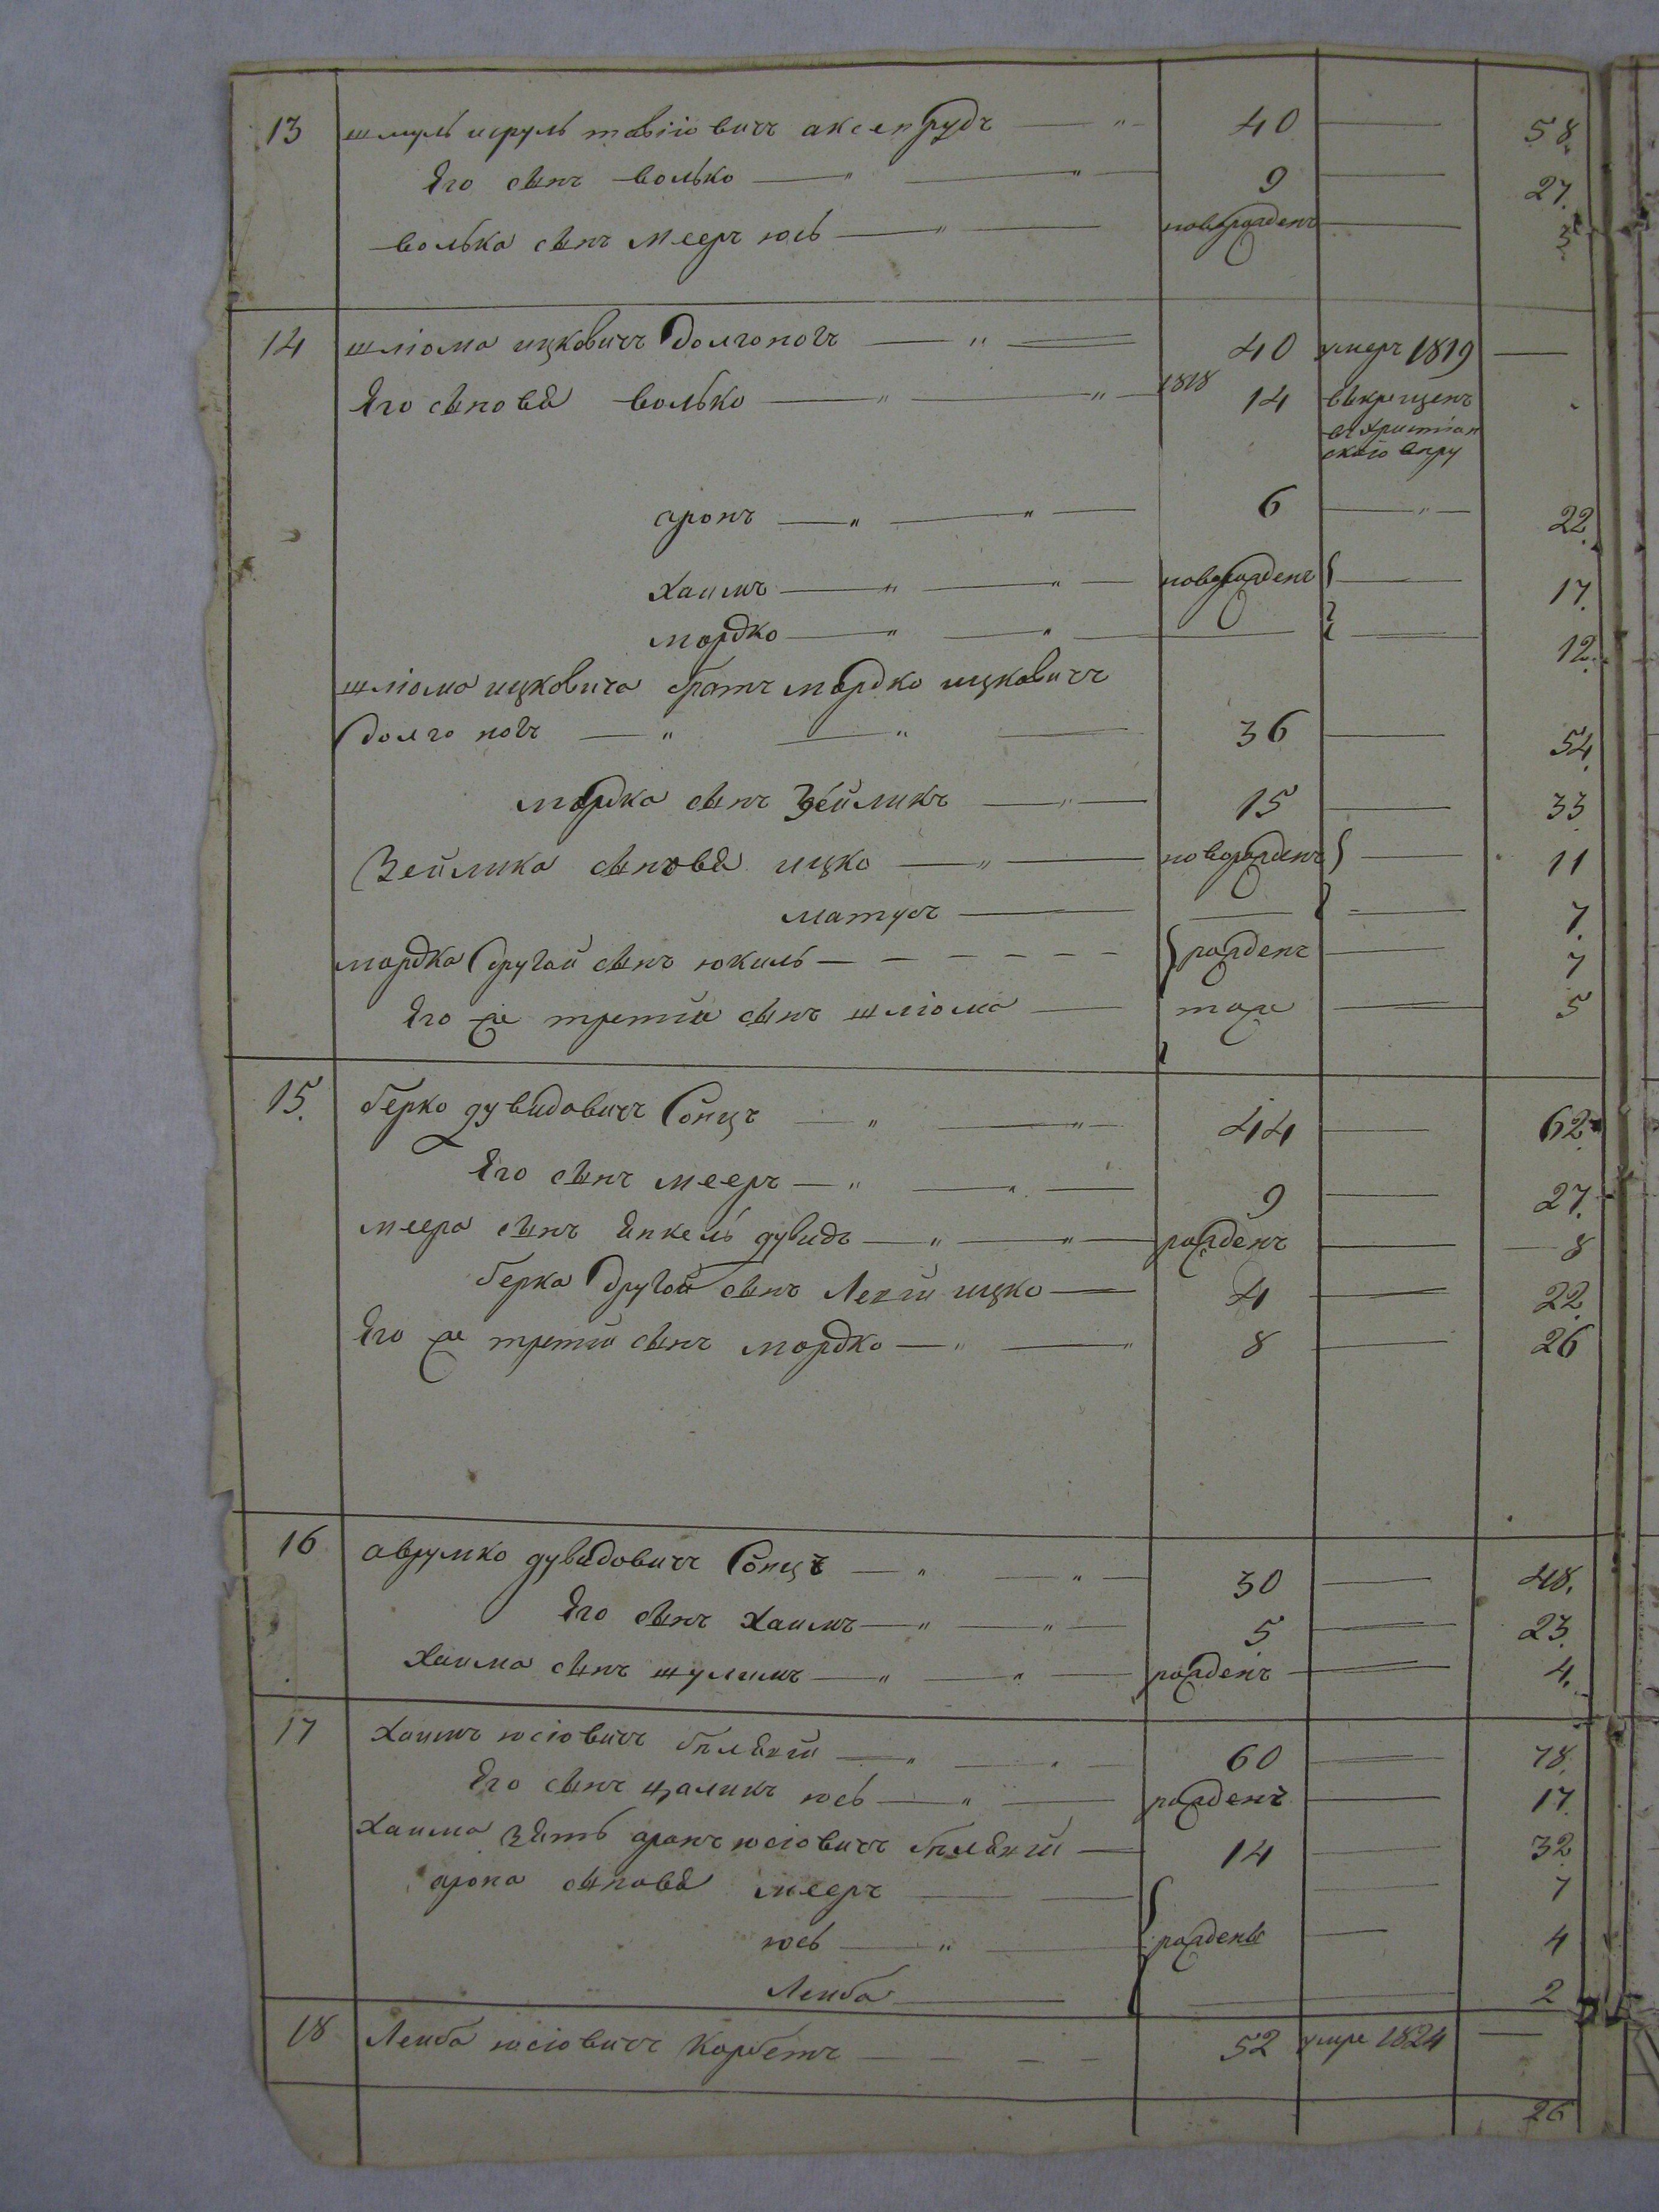 13 шмуль сруль товіювичъ аксенрудъ — " — 40 — 58.
Его сынъ волько — " — " — 9 — 27.
волька сынъ Мееръ юсь — " — новорожденъ — 3
14 шліома ицковичъ долгоногъ — " — 40 умеръ 1819 —
Его сыновя волько — " — " — 1818 14 выкрещенъ
въ христіан
скаго веру
аронъ — " — " — 6 — " — 22.
хаимъ — " — " — новорожденъ — 17.
мордко — " — " — 12.
шліома ицковича братъ мордко ицковичъ
долго ногъ — " — " — 36 — 54.
мордка сынъ Зейликъ — " — 15 — 33
Зейлика сыновя ицко — " — новорожденъ — 11
матусъ — — — 7.
мордка другой сынъ юкиль — — — — — — рожденъ — 7
Его же третій сынъ шліома — тоже — 5
15. берко дувидовичъ Сонцъ — " — " — 44 — 62.
Его сынъ мееръ — " — " — 9 — 27.
меера сынъ янкель дувидъ — " — " — рожденъ — 8
берка другой сынъ Лейзи ицко — 4 — 22.
Его же третій сынъ мордко — " — " 8 — 26
16 аврумко дувидовичъ Сонцъ — " — " — 30 — 48.
Его сынъ хаимъ — " — " — 5 — 23.
хаима сынъ шулимъ — " — " — рожденъ — 4.
17 хаимъ юсіовичъ білякій — " — " 60 — 78.
Его сынъ цаликъ юсь — " — рожденъ — 17.
хаима зять аронъ юсіовичъ білякій — 14 — 32
арона сыновя мееръ — — — 7
юсь — " — рождены — 4
Лейба — — — 2
18 Лейба юсіовичъ Корбетъ — — — — 52 умре 1824 —
26